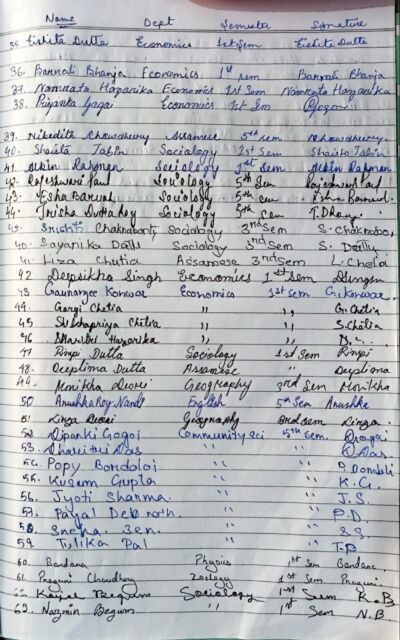 Name Dept Semester Signature
35. Eishita Dutta Economics 1st Sem Eishita Dutta
36. Barnali Bhanja Economics 1st sem Barnali Bhanja
37. Namrata Hazarika Economics 1st Sem Namrata Hazarika
38. Priyanta Gogoi Economics 1st Sem
39. Nibedita Chowdhury Assamese 5th Sem
40. Shaista Tabin Sociology 1st Sem Shaista Tabin
41. Rahman Sociology 1st Sem Rahman
42. Rajeshwari Paul Sociology 5th Sem Rajeshwari Paul
43. Esha Barual Sociology 5th Sem Esha Barual
44. Trisha Sociology 5th Sem
45. Srishti Chakraborty Sociology 3rd Sem S. Chakraborty
40. Sayanika Sociology 3rd Sem
41. Liza Chutia Assamese 3rd Sem
42 Deepsikha Singh Economics 1st Sem
43 Konwar Economics 1st Sem G. Konwar
44. Gargi Chetia " " G. Chetia
45 Chetia " " S. Chetia
46 Hazarika " "
47 Rinpi Dutta Sociology 1st Sem Rinpi
48. Deeplima Dutta Assamese " Deeplima
49. Monikha Deori Geography 3rd Sem Monikha
50 Anushka Roy Nandi English 5th Sem Anushka
51. Deori Geography 3rd Sem
52. Dipanki Gogoi Community Sci 5th Sem. D. Gogoi
53. Das " " D. Das
54. Popy Bordoloi " "
55. Kusum Gupta " " K. G.
56. Jyoti Sharma. " " J. S.
57. Payal Debnath. " " P. D.
58. Sneha Sen. " " S. S.
59. Tulika Pal " " T. P
60. Bandana Physics 1st Sem Bandana
61. Choudhury Zoology 1st Sem
62. Kajal Begum Sociology 1st Sem K. B
63. Nazmin Begum " 1st Sem N. B